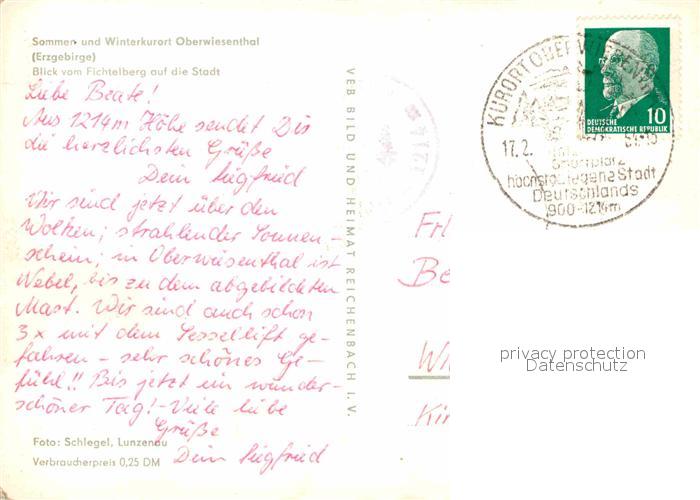 Sommer- und Winterkurort Oberwiesenthal
(Erzgebirge)
Blick vom Fichtelberg auf die Stadt
Liebe Beate!
Aus 1214m Höhe sendet Dir
die herzlichsten Grüße
Dein Siegfried
Wir sind jetzt über den
Wolken; strahlender Sonnen-
schein; in Oberwiesenthal ist
Nebel, bis zu dem abgebildeten
Mast. Wir sind auch schon
3x mit dem Sessellift ge-
fahren – sehr schönes Ge-
fühl!! Bis jetzt ein wunder-
schöner Tag! - Viele liebe
Grüße
Dein Siegfried
Foto: Schlegel, Lunzenau
Verbraucherpreis 0,25 DM
VEB BILD UND HEIMAT REICHENBACH I. V.
1214
KURORT OBERWIESENTH
17. 2.
höchstgelegene Stadt
Deutschlands
900-1214m
DEUTSCHE
DEMOKRATISCHE REPUBLIK
10
Frl
Be
W
Kir
privacy protection
Datenschutz